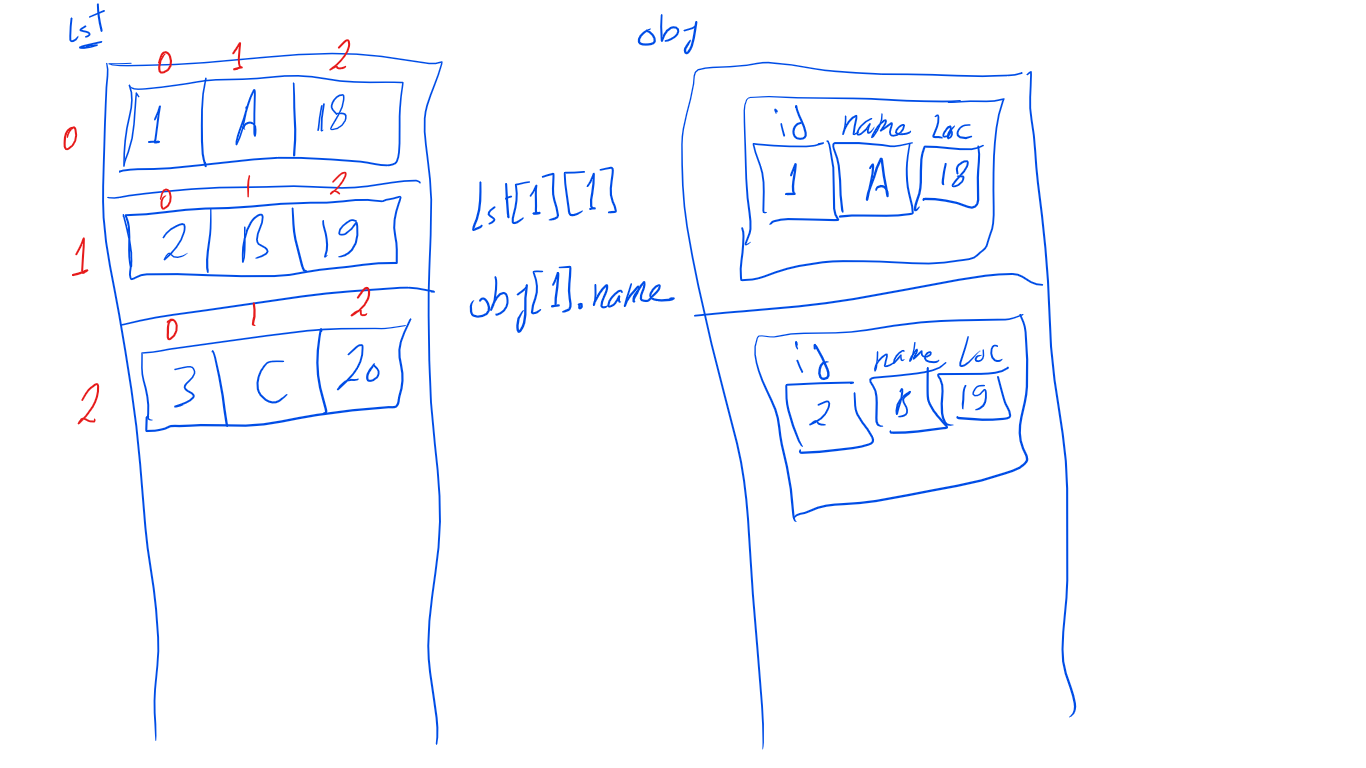 lst
0 1 2
0 1 A 18
0 1 2
1 2 B 19
0 1 2
2 3 C 20
lst[1][1]
obj[1].name
obj
id name Loc
1 A 18
id name Loc
2 B 19